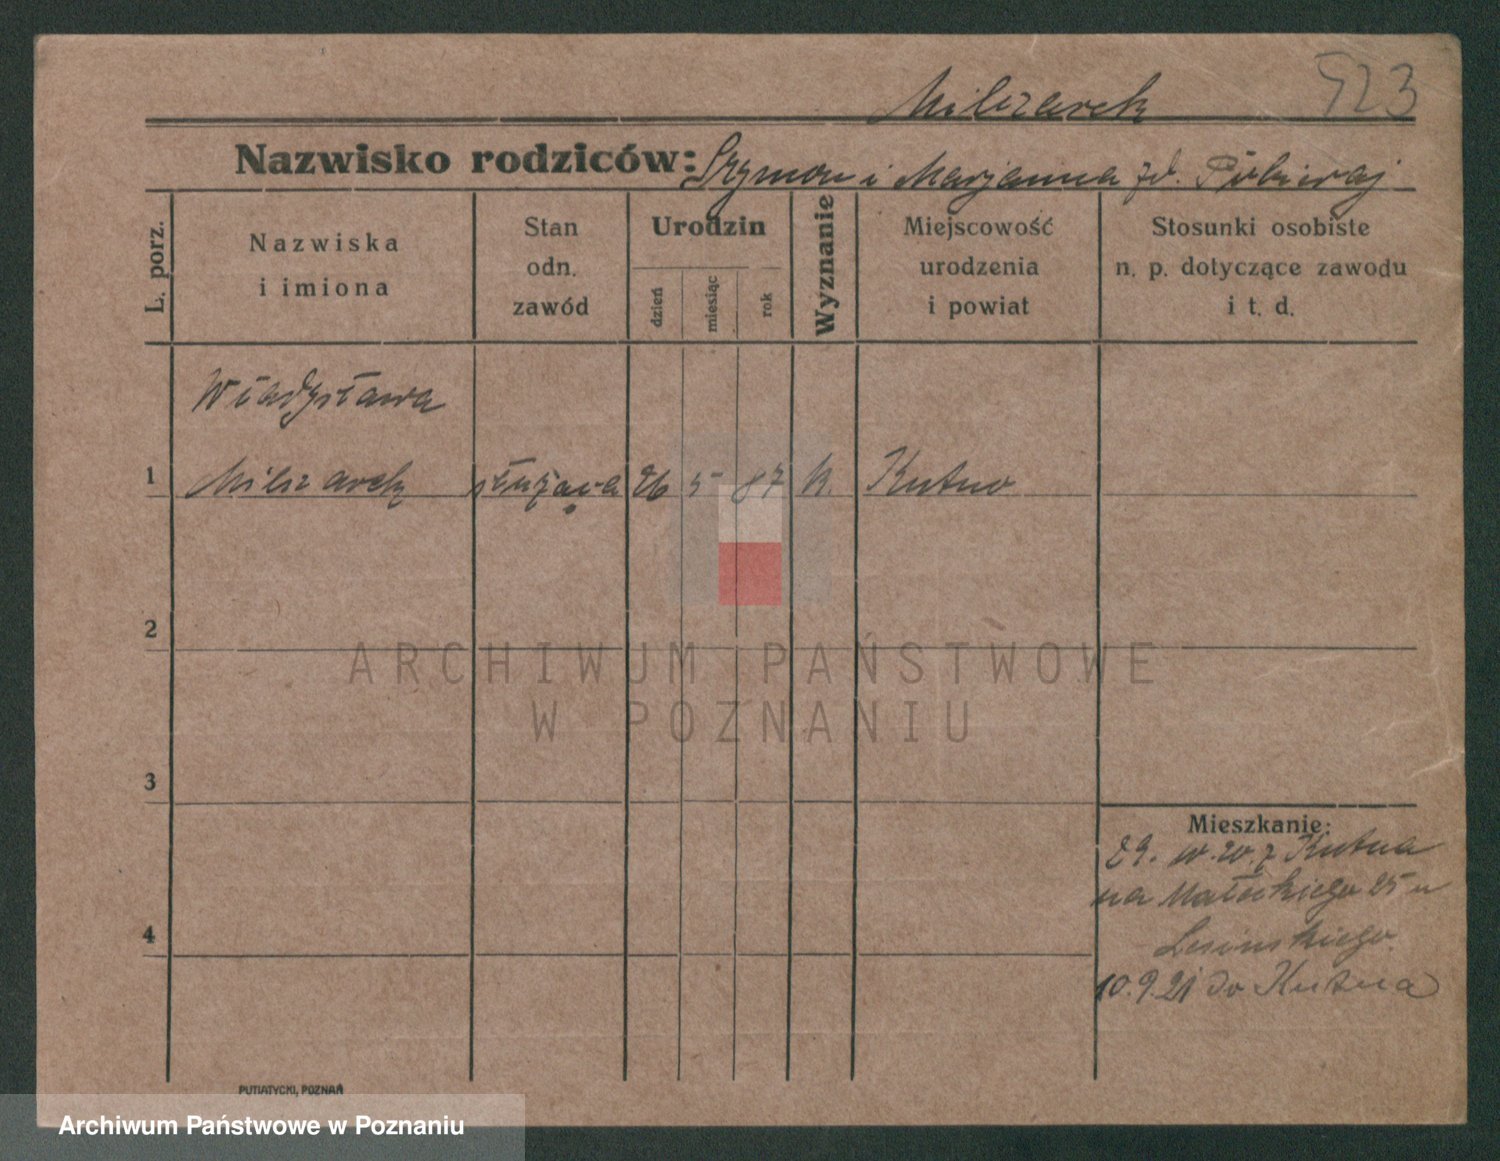 Milczarek 523
Nazwisko rodziców: Szymon i Marjanna zd.
L. porz.
Nazwiska
i imiona
Stan
odn.
zawód
Urodzin
dzień
miesiąc
rok
Wyznanie
Miejscowość
urodzenia
i powiat
Stosunki osobiste
n. p. dotyczące zawodu
i t. d.
Władysława
1 Milczarek służąca 26 5 87 k. Kutno
2
3
4
Mieszkanie:
z Kutna
na Małeckiego 25 u
Lesińskiego
10.9.21 do Kutna
PUTIATYCKI, POZNAŃ
ARCHIWUM PAŃSTWOWE
W POZNANIU
Archiwum Państwowe w Poznaniu